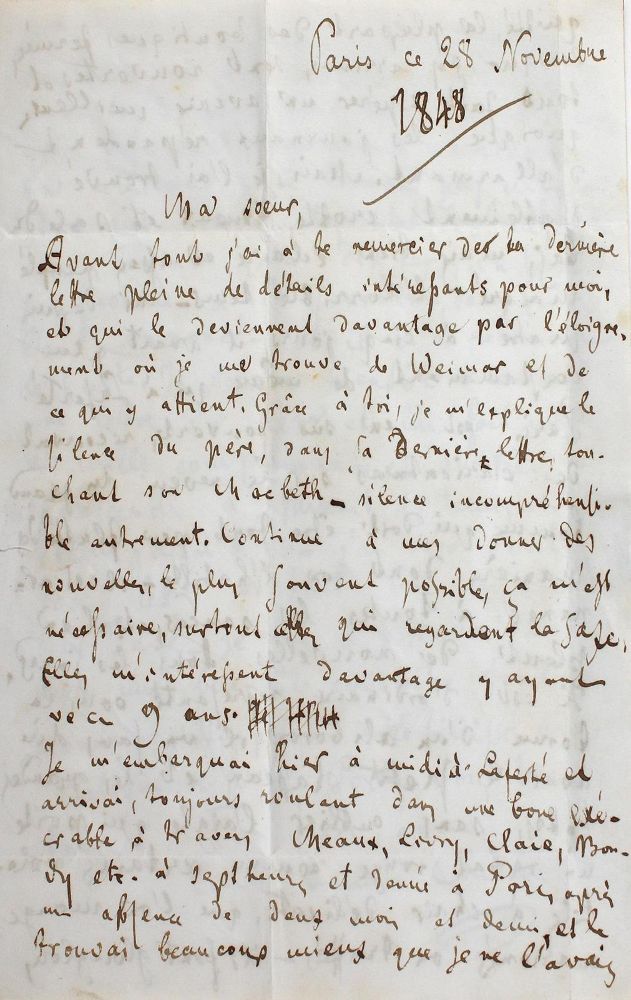 Paris ce 28 Novembre
1848.
Ma soeur,
Avant tout j'ai à te remercier de ta dernière
lettre pleine de détails intéressants pour moi,
et qui le deviennent davantage par l'éloigne-
ment où je me trouve de Weimar et de
ce qui y attient. Grâce à toi, je m'explique le
silence du père, dans sa dernière lettre, tou-
chant son Macbeth – silence incompréhensi-
ble autrement. Continue à me donner des
nouvelles, le plus souvent possible, ça m'est
nécessaire, surtout celles qui regardent la
Elles m'intéressent davantage y ayant
vécu 9 ans.
Je m'embarquai hier à midi à Laferté et
arrivai, toujours roulant dans une boue exé-
crable à travers Meaux, Livry, Claie, Bon-
dy etc. à sept heures et demie à Paris, après
une absence de deux mois et demi, et le
trouvai beaucoup mieux que je ne l'avais